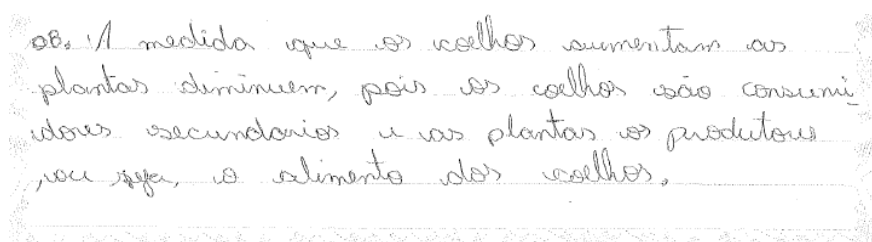 08. A medida que os coelhos aumentam as
plantas diminuem, pois os coelhos são consumi_
dores secundarios e as plantas os produtores
, ou seja, o alimento dos coelhos.